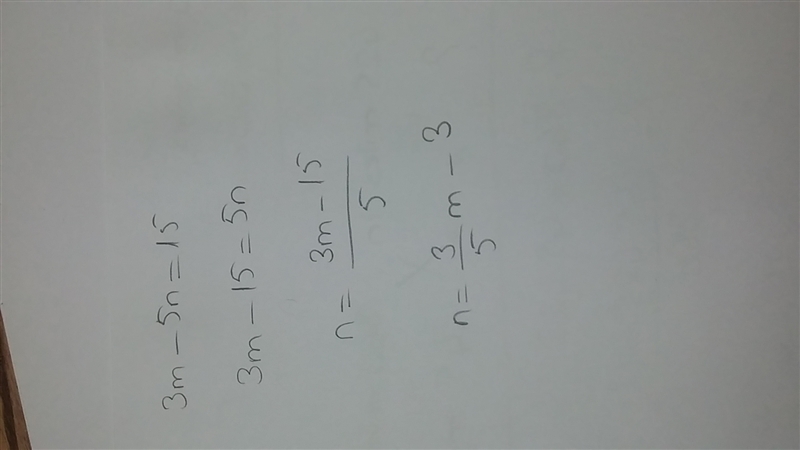 3m - 5n = 15
3m - 15 = 5n
n = \frac{3m - 15}{5}
n = \frac{3}{5} m - 3